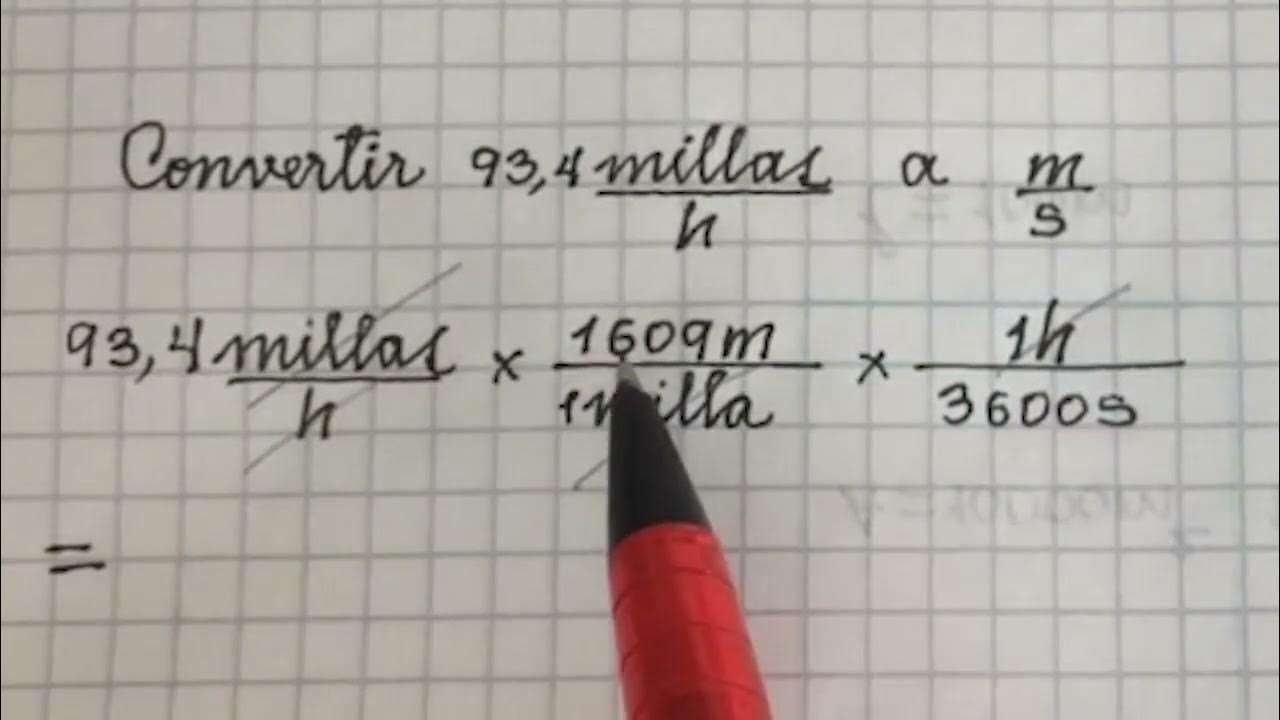 Convertir 93,4 millas a m
h s
93,4 millas x 1609m x 1h
h 1milla 3600s
=